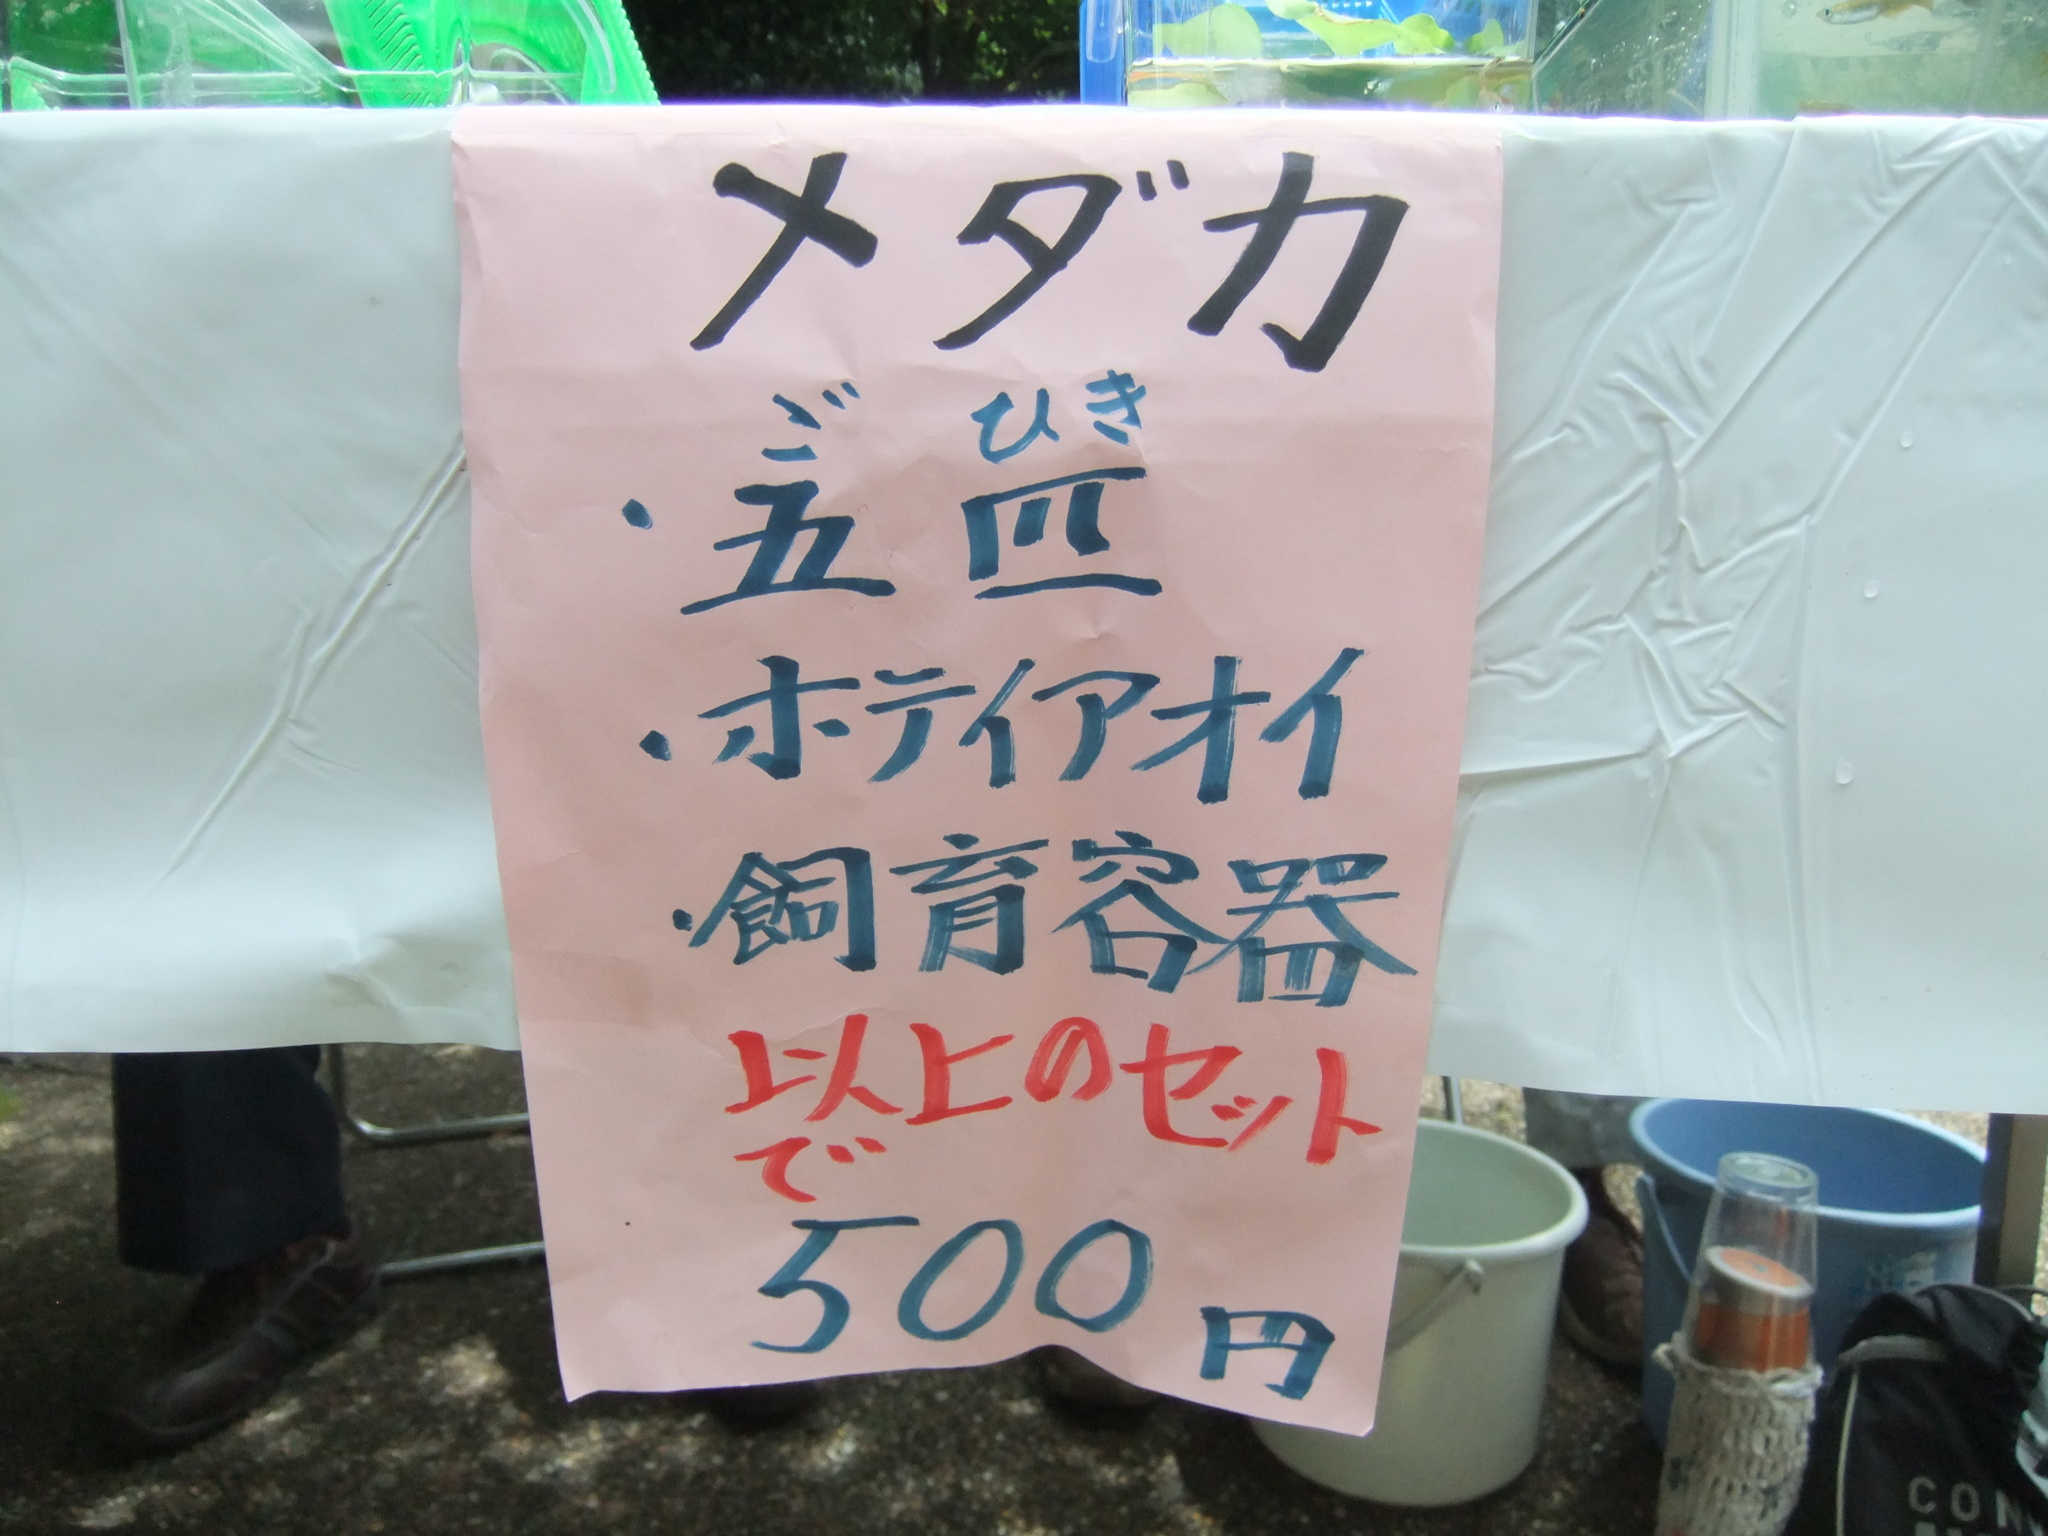 メダカ
ごひき
・五皿
・ホテイアオイ
・飼育容器
以上のセット
で
500円
CON